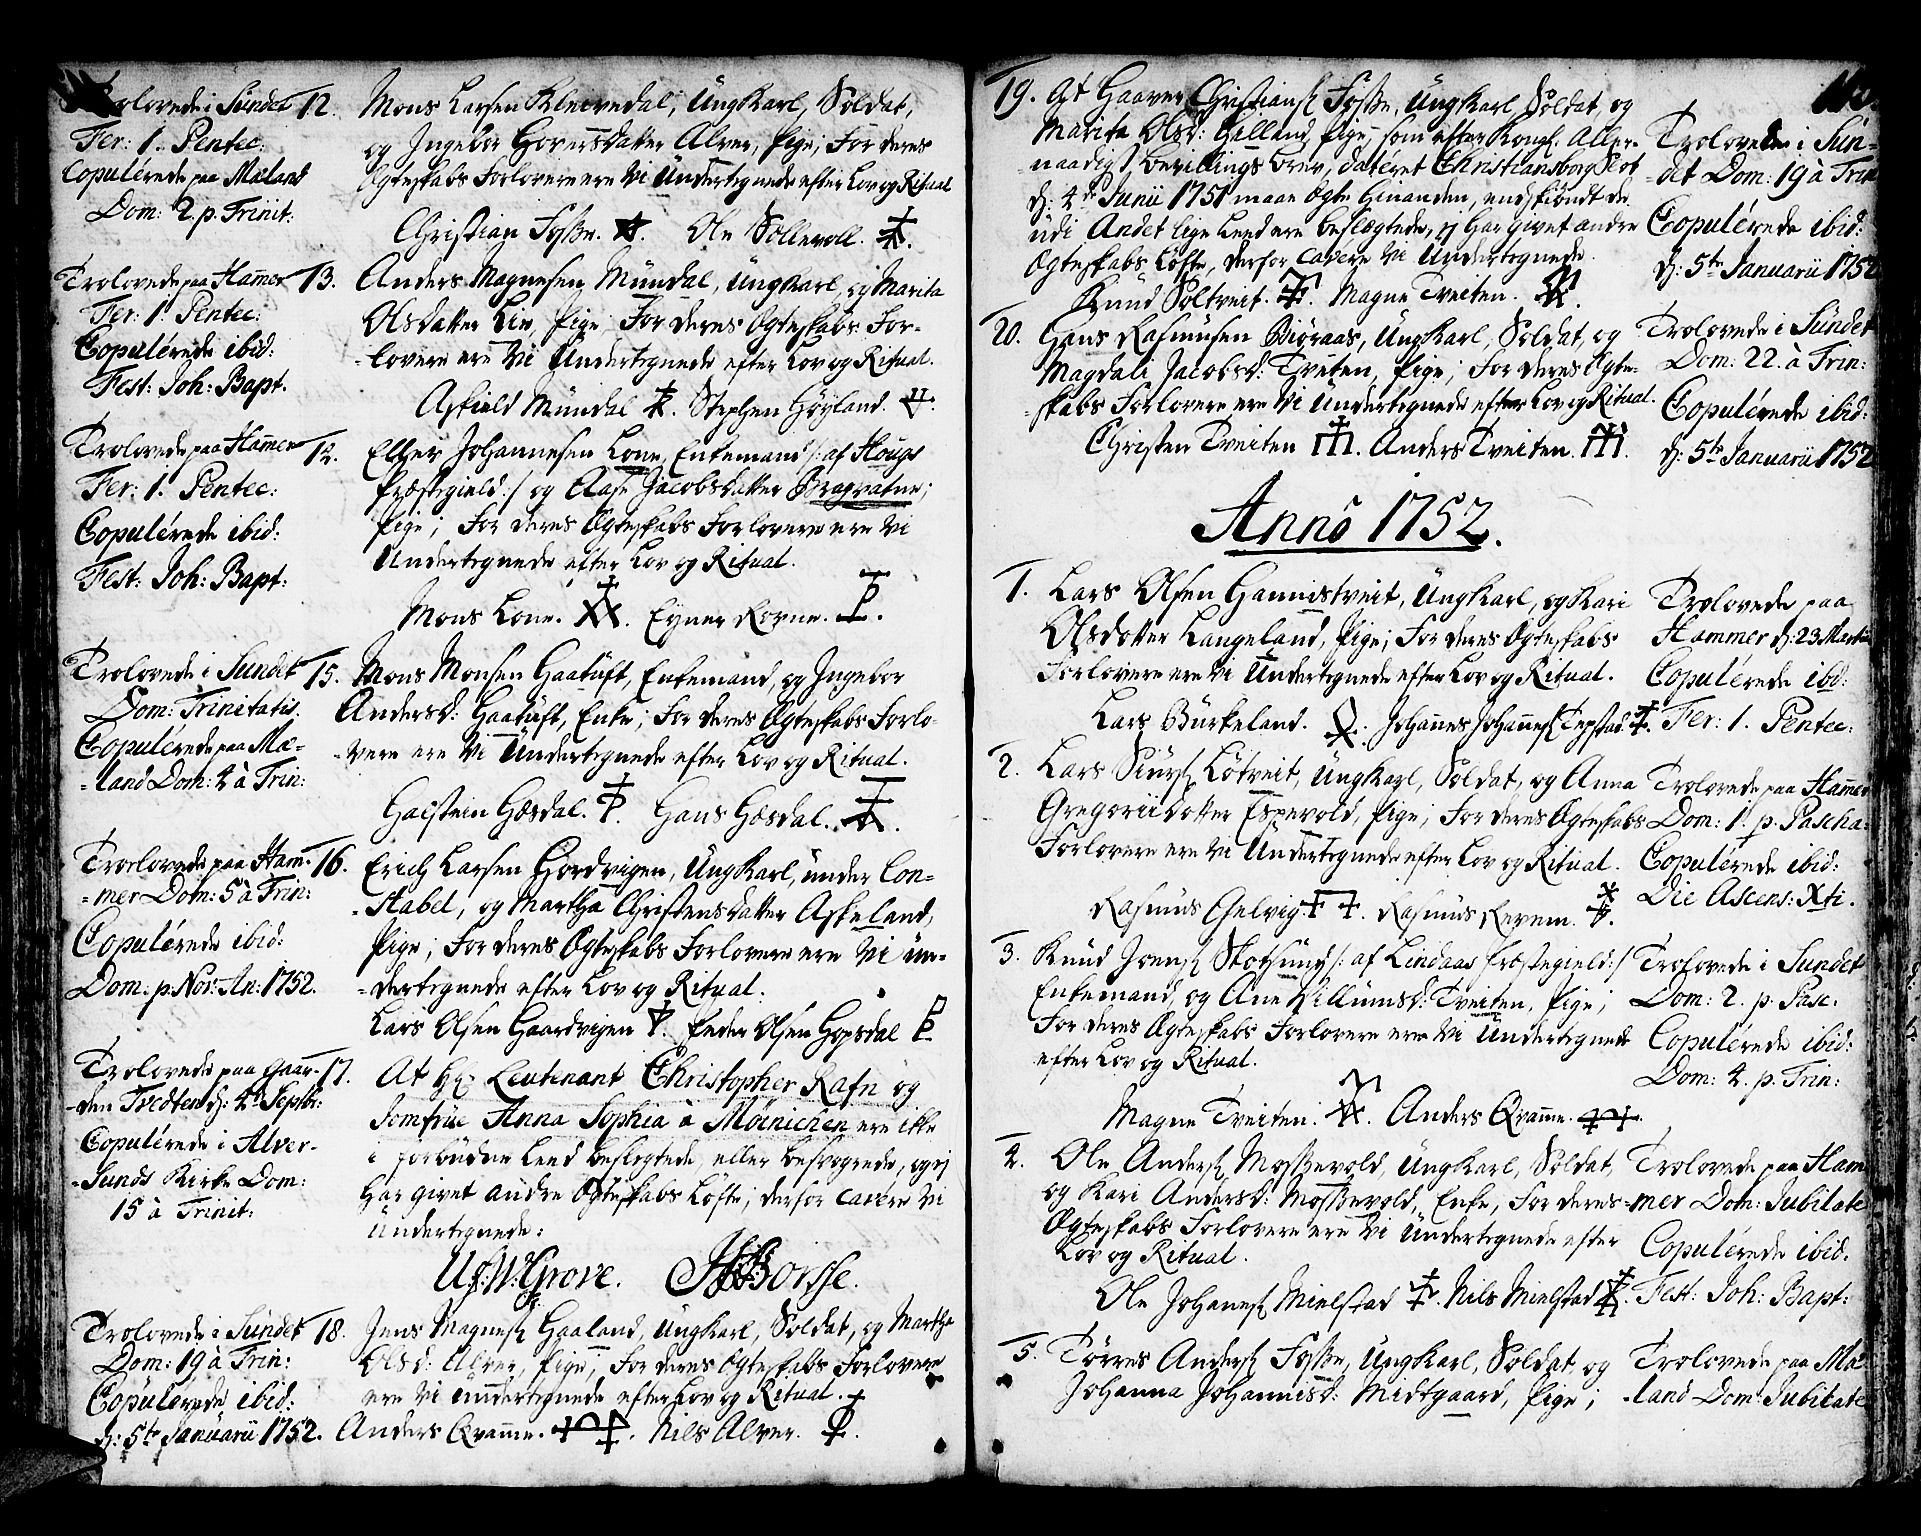 Trolovede i Sundet
Fer: 1. Pentec:
Copulérede paa Mæland
Dom: 2. p. Trinit:
12. Mons Larsen Kleivedal, Ungkarl, Soldat,
og Ingebor Goversdatter Alver, Pige; For deres
Ægteskabs Forlovere ere Vi Undertegnede efter Lov og Ritual
Christian Fosse. Ole Sollevoll.
Trolovede paa Hamer
Fer: 1. Pentec:
Copulérede ibid:
Fest: Joh: Bapt.
13. Anders Magnesen Mundal, Ungkarl, og Marita
Olsdatter Lie, Pige; For deres Ægteskabs For-
-lovere ere Vi Undertegnede efter Lov og Ritual.
Askield Mundal. Stephen Höyland.
Trolovede paa Hamer
Fer: 1. Pentec:
Copulérede ibid:
Fest: Joh: Bapt:
14. Elling Johannesen Lone, Enkemand /: af Hougs
Præstegield :/ og Aase Jacobsdatter Bragvatne;
Pige; For deres Ægteskabs Forlovere ere Vi
Undertegnede efter Lov og Ritual.
Mons Lone. Eyner Rovne.
Trolovede i Sundet
Dom: Trinitatis.
Copulérede paa Mæ-
-land Dom: 4 à Trin:
15. Mons Monsen Gaatuft, Enkemand, og Ingebor
Andersd: Gaatuft, Enke; For deres Ægteskabs Forlo-
-vere ere Vi Undertegnede efter Lov og Ritual.
Halstein Hæsdal. Hans Hæsdal.
Trolovede paa Ham-
-mer Dom: 5 à Trin:
Copulérede ibid:
Dom. p. Nov: An: 1752.
16. Erich Larsen Hordvigen, Ungkarl, under Con-
-stabel, og Martha Christensdatter Askeland,
Pige; For deres Ægteskabs Forlovere ere Vi un-
-dertegnede efter Lov og Ritual.
Lars Olsen Haardvigen. Peder Olsen Hopsdal
Trolovede paa Gaar-
-den Tvedten d: 4de Septbr:
Copulérede i Alver-
-Sunds Kirke Dom:
15 à Trinit:
17. At Hr. Leutenant Christopher Rafn og
Jomfrue Anna Sophia à Møinichen ere ikke
i forbuden Leed beslegtede, eller besvogrede, og ej
har givet andre Ægteskabs Löfte; derfor cavére Vi
Undertegnede:
U. F. W. Grove. Borsse.
Trolovede i Sundet
Dom: 19 à Trin:
Copulerede ibid:
d: 5te Januarii 1752.
18. Jens Magnes. Haaland, Ungkarl, Soldat, og Martha
Olsd: Alver, Pige; For deres Ægteskabs Forlovere
ere Vi undertegnede efter Lov og Ritual.
Anders Qvamme. Nils Alver.
19. At Haaver Christians. Fosse, Ungkarl, Soldat, og
Marita Olsd: Helland, Pige, som efter Kongl. Aller-
-naadigst bevillings brev, dateret Christiansborg Slot
d: 4de Junii 1751 maae ægte hinanden, endskiöndt de
udi Andet lige Leed ere beslægtede, ej har givet andre
Ægteskabs Löfte, derfor cavére Vi Undertegnede.
Knud Soltveit. Magne Tveiten.
Trolovede i Sun-
-det Dom: 19 à Trin
Copulérede ibid:
d: 5te Januarii 1752
20. Hans Rasmusen Biøraas, Ungkarl, Soldat, og
Magdali Jacobsd: Tveten, Pige; For deres Ægte-
-skabs Forlovere ere Vi Undertegnede efter Lov og Ritual.
Christen Tveiten. Anders Tveiten.
Trolovede i Sundet
Dom: 22. à Trin:
Copulérede ibid:
d: 5te Januarii 1752
Anno 1752.
1. Lars Olsen Hannistveit, Ungkarl, og Kari
Olsdatter Langeland, Pige; For deres Ægteskabs
Forlovere ere Vi Undertegnede efter Lov og Ritual.
Lars Burkeland. Johannes Johannes. Tepstad.
Trolovede paa
Hammer d: 23 Martii
Copulérede ibid:
Fer: 1. Pentec:
2. Lars Siurs. Lötveit, Ungkarl, Soldat, og Anna
Gregoriidatter Espevold, Pige; For deres Ægteskabs
Forlovere ere Vi Undertegnede efter Lov og Ritual.
Rasmus Gielvig. Rasmus Revem.
Trolovede paa Hamer
Dom: 1. p. Pascha:
Copulérede ibid:
Die Ascens: Xti.
3. Knud Joens. Skotsund /: af Lindaas Præstegield :/
Enkemand, og Ane Villumsd: Tveiten, Pige;
For deres Ægteskabs Forlovere ere Vi Undertegnede
efter Lov og Ritual.
Magne Tveiten. Anders Qvamme.
Trolovede i Sundet
Dom: 2. p. Pasc:
Copulérede ibid:
Dom: 4. p. Trin:
4. Ole Anders. Mossevold, Ungkarl, Soldat,
og Kari Andersd: Mossevold, Enke, For deres
Ægteskabs Forlovere ere Vi Undertegnede efter
Lov og Ritual.
Ole Johanes. Mielstad. Nils Mielstad.
Trolovede paa Ham
-mer Dom: Jubilate
Copulérede ibid.
Fest: Joh: Bapt:
5. Törres Anders. Fosse, Ungkarl, Soldat, og
Johanna Johannisd: Midtgaard, Pige;
Trolovede paa Mæ
-land Dom: Jubilate